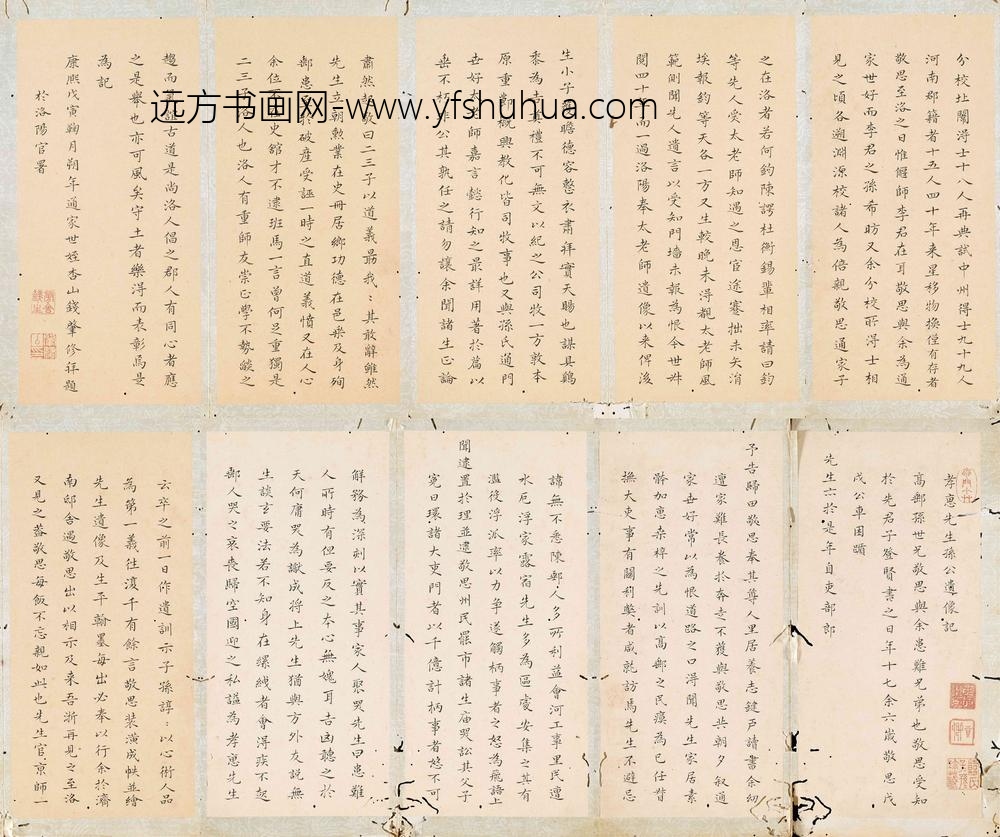 孝惠先生孫公遺像記
高郵孫世兄敬思與余患難兄弟也敬思受知
於先君子登賢書之日年十七余六歲敬思戊
戌公車困躓
先生六於是年自吏部郎
予告歸田敬思奉其尊人里居養志鍵戶讀書余幼
遭家難長養於奔走不獲與敬思共朝夕叙通
家世好常以為恨道路之口得聞先生家居素
骼加恵桑梓之先訓以髙郵之民瘼為已任昔
撫大吏事有關利獘者咸就訪焉先生不避忌
諱無不悉陳郵人多所利益會河工事里民遭
水厄浮家露宿先生多為區處安集之其有
濫從浮派率以力争遂觸柄事者之怒為飛語上
聞逮置於理並遣敬思州民罷市諸生庙哭訟其父子
寃日環諸大吏門者以千億計柄事者怒不可
解務為深刻以實其事家人聚哭先生曰患難
人所時有但要反之本心無媿耳吉凶聽之於
天何庸哭為讞成将上先生猶與方外友説無
生談玄要法若不知身在縲絏者會得疾不起
郵人哭之哀喪歸空國迎之私謚為孝惠先生
云卒之前一日作遺訓示子孫諄:以心術人品
為第一義往復千有餘言敬思装潢成帙並繪
先生遺像及生平翰墨每出必奉以行余於濟
南邸舍遇敬思出以相示及来吾浙再見之至洛
又見之蓋敬思每飯不忘親如此也先生官京師一
分校北闈淂士十八人再典試中州得士九十九人
河南郡籍者十五人四十年来星移物換僅有存者
敬思至洛之日惟偃師李君在耳敬思與余為通
家世好而李君之孫希昉又余分校所淂士相
見之頃各遡淵源校諸人為倍親敬思通家子
之在洛者若何鈞陳諤杜衡錫輩相率請曰鈞
等先人受太老師知遇之恩官途蹇拙未矢涓
埃報鈞等天各一方又生較晚未淂覩太老師風
範則聞先人遺言以受知門墻未報為恨今世叔
閱四十年而一過洛陽奉太老師遺像以来俾後
生小子獲瞻德容整衣肅拜實天賜也謀具鷄
黍為寿禮不可無文以紀之公司牧一方敦本
原重感槩興教化皆司牧事也又與孫氏通門
世好太老師嘉言懿行知之最詳用著於篇以
垂不朽非公其孰任之請勿讓余聞諸生正論
肅然起敬曰二三子以道義朂我:其敢辭雖然
先生立朝勲業在史冊居鄉功德在邑乗及身殉
郵患至於破産受誣一時之直道義憤又在人心
余位不在史舘才不逮班馬一言曽何足重獨是
二三子洛人也洛人有重師友崇正學不勢燄之
趨而惟古道是尚洛人倡之郡人有同心者應
之是舉也亦可風矣守土者樂淂而表彰焉是
為記
康熙戊寅鞠月朔年通家世姪杏山錢肇修拜題
於洛陽官署
远方书画网-www.yfshuhua.com